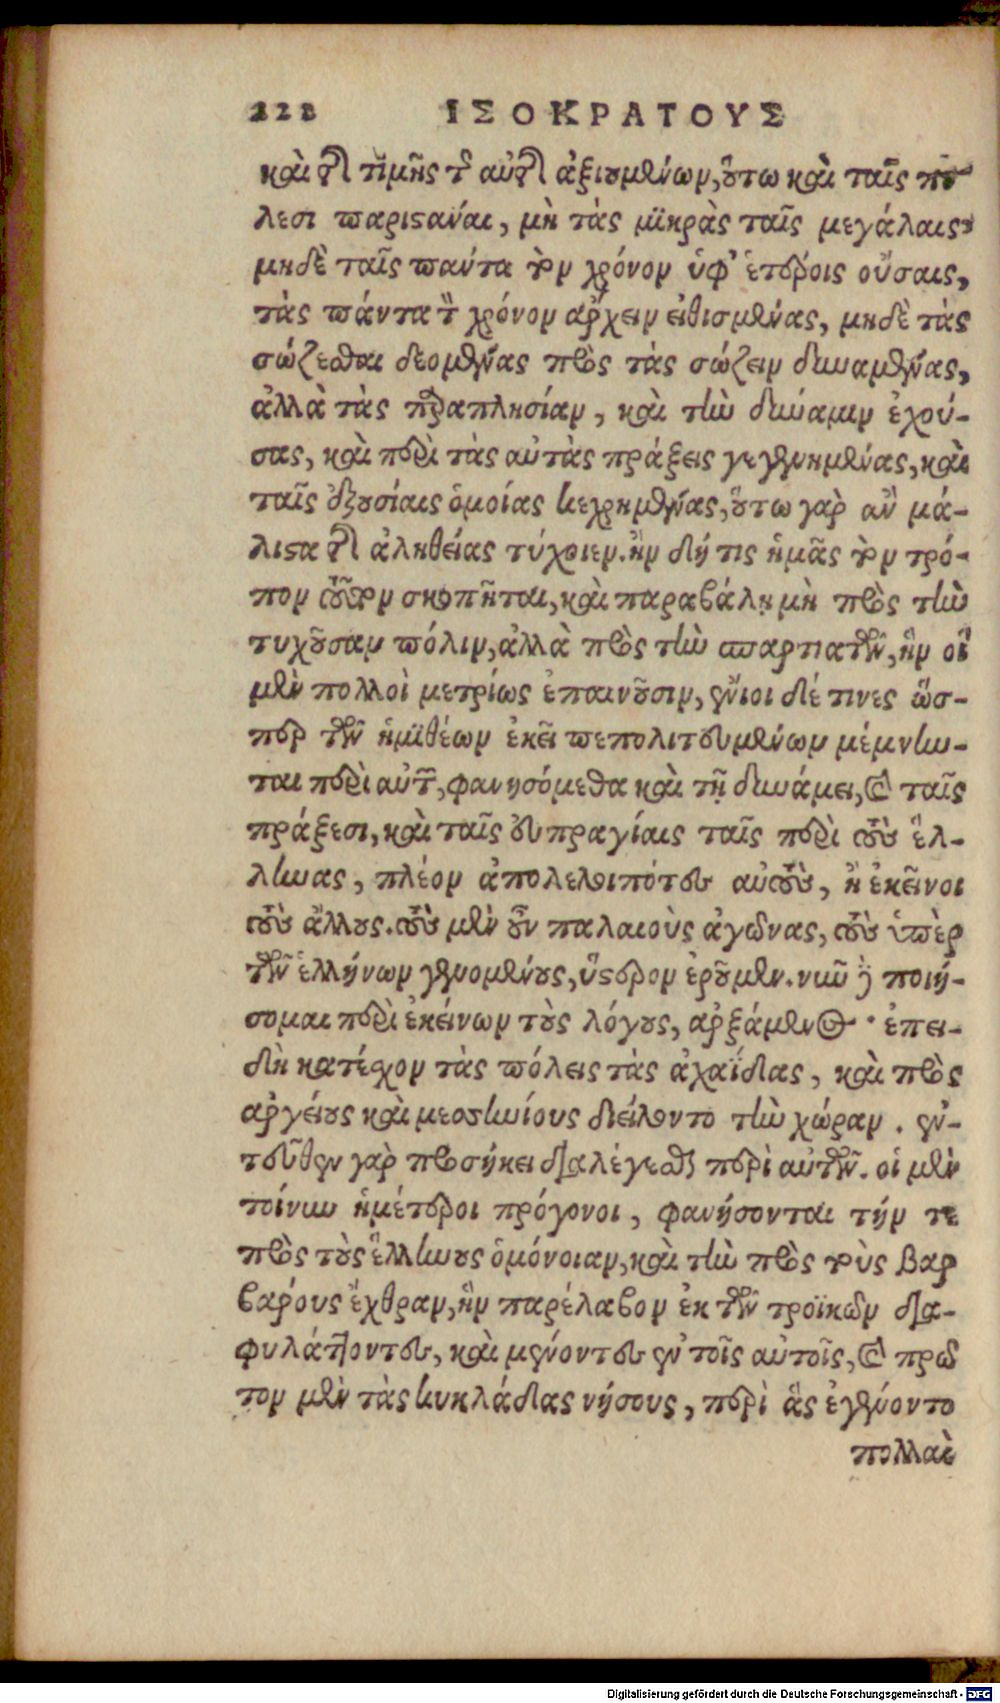 228 ΙΣΟΚΡΑΤΟΥΣ
καὶ τῆς τιμῆς τῆς αὐτῆς ἀξιουμένων, οὕτω καὶ ταῖς πό-
λεσι παριστάναι, μὴ τὰς μικρὰς ταῖς μεγάλαις,
μηδὲ ταῖς πάντα τὸν χρόνον ὑφ' ἑτέροις οὔσαις,
τὰς πάντα τὸν χρόνον ἄρχειν εἰθισμένας, μηδὲ τὰς
σώζεσθαι δεομένας πρὸς τὰς σώζειν δυναμένας,
ἀλλὰ τὰς παραπλησίαν, καὶ τὴν δύναμιν ἐχού-
σας, καὶ περὶ τὰς αὐτὰς πράξεις γεγενημένας, καὶ
ταῖς ἐξουσίαις ὁμοίας κεχρημένας, οὕτω γὰρ ἂν μά-
λιστα τῆς ἀληθείας τύχοιεν. ἢν δή τις ἡμᾶς τὸν τρό-
πον τοῦτον σκοπῆται, καὶ παραβάλῃ μὴ πρὸς τὴν
τυχοῦσαν πόλιν, ἀλλὰ πρὸς τὴν σπαρτιατῶν, ἣν οἱ
μὲν πολλοὶ μετρίως ἐπαινοῦσιν, ἔνιοι δέ τινες ὥσ-
περ τῶν ἡμιθέων ἐκεῖ πεπολιτευμένων μέμνην-
ται περὶ αὐτῶν, φανησόμεθα καὶ τῇ δυνάμει, καὶ ταῖς
πράξεσι, καὶ ταῖς εὐπραγίαις ταῖς περὶ τοὺς ἕλ-
ληνας, πλέον ἀπολελοιπότες αὐτοὺς, ἢ ἐκεῖνοι
τοὺς ἄλλους. τοὺς μὲν οὖν παλαιοὺς ἀγῶνας, τοὺς ὑπὲρ
τῶν ἑλλήνων γενομένους, ὕστερον ἐροῦμεν. νῦν δὲ ποιή-
σομαι περὶ ἐκείνων τοὺς λόγους, ἀρξάμενος · ἐπει-
δὴ κατέσχον τὰς πόλεις τὰς ἀχαΐδας, καὶ πρὸς
ἀργείους καὶ μεσσηνίους διείλοντο τὴν χώραν. ἐν-
τεῦθεν γὰρ προσήκει διαλέγεσθαι περὶ αὐτῶν. οἱ μὲν
τοίνυν ἡμέτεροι πρόγονοι, φανήσονται τήν τε
πρὸς τοὺς ἕλληνας ὁμόνοιαν, καὶ τὴν πρὸς τοὺς βαρ
βάρους ἔχθραν, ἣν παρέλαβον ἐκ τῶν τροϊκῶν δια-
φυλάττοντες, καὶ μένοντες ἐν τοῖς αὐτοῖς, καὶ πρῶ
τον μὲν τὰς κυκλάδας νήσους, περὶ ἃς ἐγένοντο
πολλαὶ
Digitalisierung gefördert durch die Deutsche Forschungsgemeinschaft - DFG